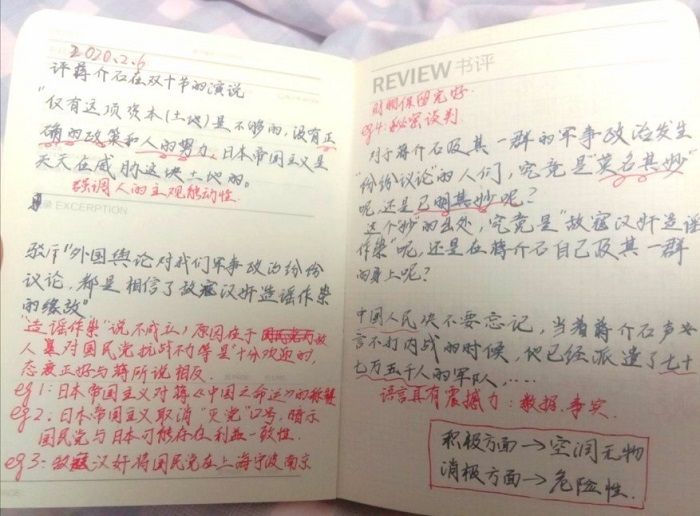 2020.2.6
评蒋介石在双十节的演说
"仅有这项资本(土地)是不够的,没有正
确的政策和人的努力,日本帝国主义是
天天在威胁这块土地的。
强调人的主观能动性
EXCERPTION
驳斥"外国舆论对我们军事政治纷纷
议论,都是相信了敌寇汉奸造谣作祟
的缘故"
"造谣作祟"说不成立,原因在于
人寇对国民党抗战不力等是十分欢迎的,
态度正好与蒋所说相反.
eg1:日本帝国主义对蒋《中国之命运》的
eg2.日本帝国主义取消"灭党"口号,暗示
国民党与日本可能存在利益一致性.
eg3:敌寇汉奸将国民党在上海宁波南京
REVIEW 书评
财物保留完好.
eg4:秘密谈判
对于蒋介石及其一群的军事政治发生
"纷纷议论"的人们,究竟是"莫名其妙"
呢,还是已明其妙呢?
这个"妙"的出处,究竟是"敌寇汉奸造谣
作祟"呢,还是在蒋介石自己及其一群
的身上呢?
中国人民决不要忘记,当着蒋介石声
言不打内战的时候,他已经派遣了七十
七万五千人的军队,....
语言具有震撼力:数据,事实.
积极方面→空洞无物
消极方面→危险性.